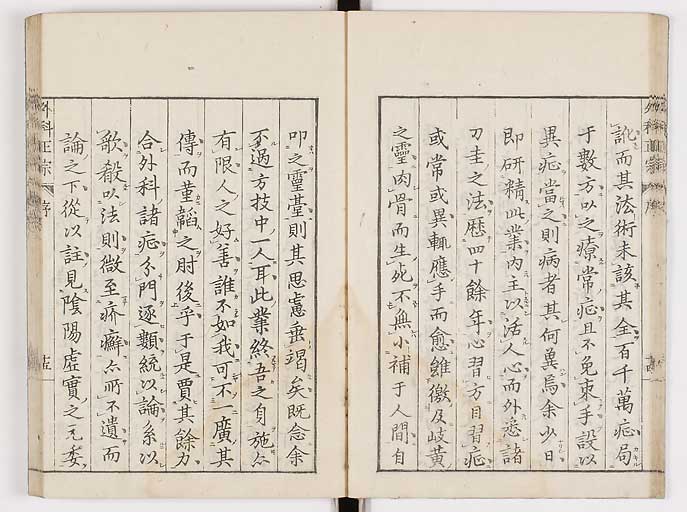 訛而其法術未該其全百千萬症局
于數方以之療常症且不免束手設以
異症當之則病者其何冀焉余少日
即研精此業內主以活人心而外悉諸
刀圭之法歷四十餘年心習方目習症
或常或異輒應手而愈雖徵及岐黃
之靈肉骨而生死不無小補于人間自
叩之靈臺則其思慮垂竭矣既念余
不過方技中一人耳此業終吾之身施亦
有限人之好善誰不如我可不一廣其
傳而董韜之肘後乎于是賈其餘力
合外科諸症分門逐類統以論系以
歌殺以法則微至疥癬亦所不遺而
論之下從以註見陰陽虛實之元委
外科正宗 序
外科正宗 序